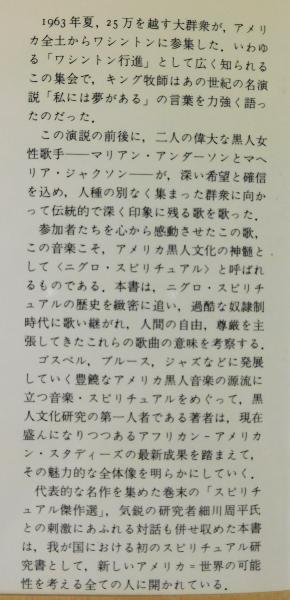 1963年夏，25万を越す大群衆が，アメリ
カ全土からワシントンに参集した．いわゆ
る「ワシントン行進」として広く知られる
この集会で，キング牧師はあの世紀の名演
説「私には夢がある」の言葉を力強く語っ
たのだった．
この演説の前後に，二人の偉大な黒人女
性歌手——マリアン・アンダーソンとマヘ
リア・ジャクソン——が，深い希望と確信
を込め，人種の別なく集まった群衆に向か
って伝統的で深く印象に残る歌を歌った．
参加者たちを心から感動させたこの歌，
この音楽こそ，アメリカ黒人文化の神髄と
して〈ニグロ・スピリチュアル〉と呼ばれ
るものである．本書は，ニグロ・スピリチ
ュアルの歴史を緻密に追い，過酷な奴隷制
時代に歌い継がれ，人間の自由，尊厳を主
張してきたこれらの歌曲の意味を考察する．
ゴスペル，ブルース，ジャズなどに発展
していく豊饒なアメリカ黒人音楽の源流に
立つ音楽・スピリチュアルをめぐって，黒
人文化研究の第一人者である著者は，現在
盛んになりつつあるアフリカン-アメリカ
ン・スタディーズの最新成果を踏まえて，
その魅力的な全体像を明らかにしていく．
代表的な名作を集めた巻末の「スピリチ
ュアル傑作選」，気鋭の研究者細川周平氏
との刺激にあふれる対話も併せ収めた本書
は，我が国における初のスピリチュアル研
究書として，新しいアメリカ=世界の可能
性を考える全ての人に開かれている．